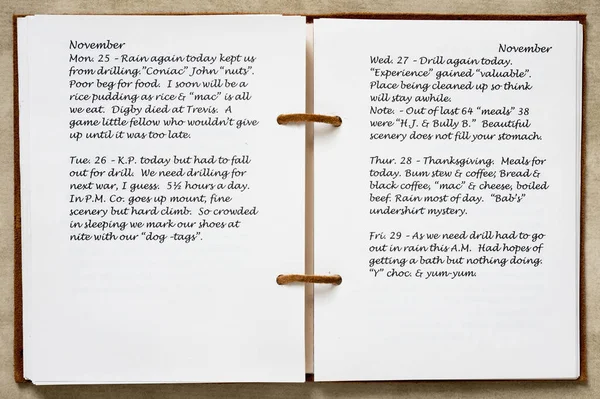 November
Mon. 25 - Rain again today kept us
from drilling."Coniac" John "nuts".
Poor beg for food. I soon will be a
rice pudding as rice & "mac" is all
we eat. Digby died at Trevis. A
game little fellow who wouldn't give
up until it was too late.
Tue. 26 - K.P. today but had to fall
out for drill. We need drilling for
next war, I guess. 5½ hours a day.
In P.M. Co. goes up mount, fine
scenery but hard climb. So crowded
in sleeping we mark our shoes at
nite with our "dog -tags".
November
Wed. 27 - Drill again today.
"Experience" gained "valuable".
Place being cleaned up so think
will stay awhile.
Note. - Out of last 64 "meals" 38
were "H.J. & Bully B." Beautiful
scenery does not fill your stomach.
Thur. 28 - Thanksgiving. Meals for
today. Bum stew & coffee; Bread &
black coffee, "mac" & cheese, boiled
beef. Rain most of day. "Bab's"
undershirt mystery.
Fri. 29 - As we need drill had to go
out in rain this A.M. Had hopes of
getting a bath but nothing doing.
"Y" choc. & yum-yum.